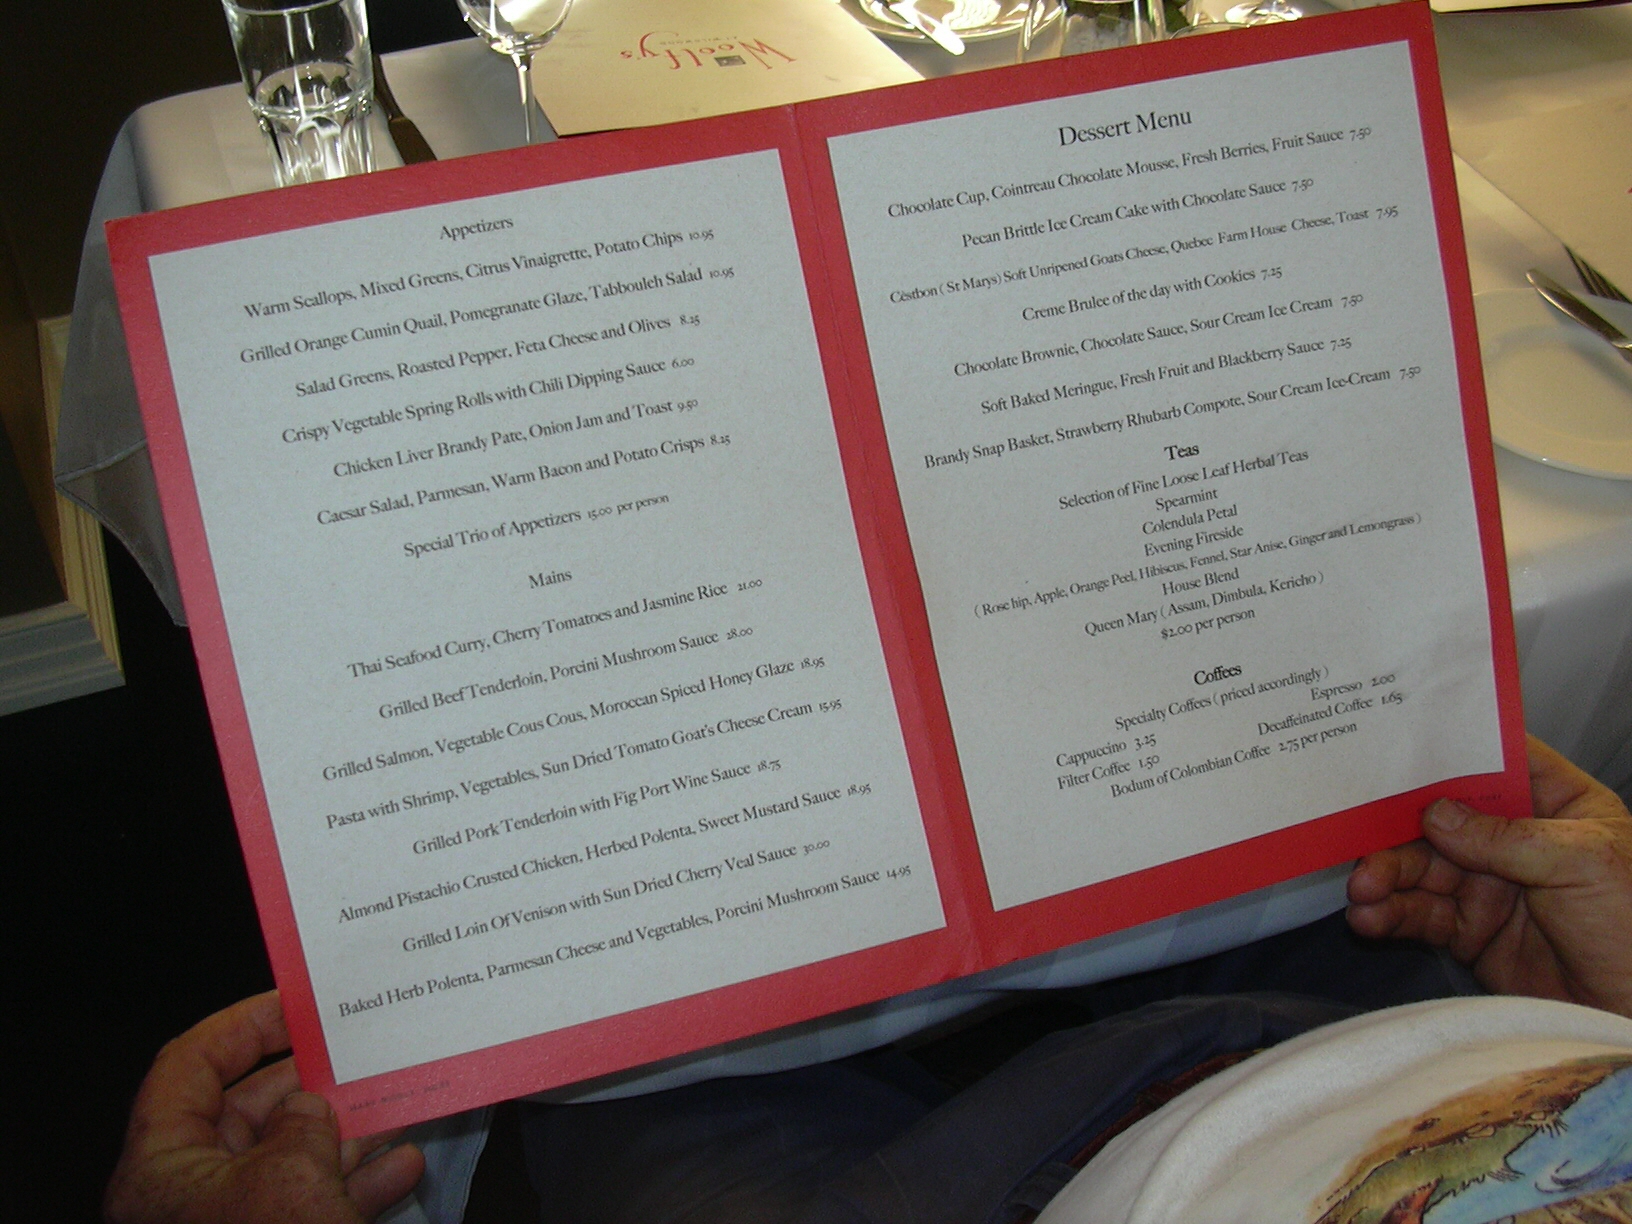 Woolfy's
AT WILDWOOD
Appetizers
Warm Scallops, Mixed Greens, Citrus Vinaigrette, Potato Chips 10.95
Grilled Orange Cumin Quail, Pomegranate Glaze, Tabbouleh Salad 10.95
Salad Greens, Roasted Pepper, Feta Cheese and Olives 8.25
Crispy Vegetable Spring Rolls with Chili Dipping Sauce 6.00
Chicken Liver Brandy Pate, Onion Jam and Toast 9.50
Caesar Salad, Parmesan, Warm Bacon and Potato Crisps 8.25
Special Trio of Appetizers 15.00 per person
Mains
Thai Seafood Curry, Cherry Tomatoes and Jasmine Rice 21.00
Grilled Beef Tenderloin, Porcini Mushroom Sauce 28.00
Grilled Salmon, Vegetable Cous Cous, Moroccan Spiced Honey Glaze 18.95
Pasta with Shrimp, Vegetables, Sun Dried Tomato Goat's Cheese Cream 15.95
Grilled Pork Tenderloin with Fig Port Wine Sauce 18.75
Almond Pistachio Crusted Chicken, Herbed Polenta, Sweet Mustard Sauce 18.95
Grilled Loin Of Venison with Sun Dried Cherry Veal Sauce 30.00
Baked Herb Polenta, Parmesan Cheese and Vegetables, Porcini Mushroom Sauce 14.95
Dessert Menu
Chocolate Cup, Cointreau Chocolate Mousse, Fresh Berries, Fruit Sauce 7.50
Pecan Brittle Ice Cream Cake with Chocolate Sauce 7.50
Cèstbon ( St Marys) Soft Unripened Goats Cheese, Quebec Farm House Cheese, Toast 7.95
Creme Brulee of the day with Cookies 7.25
Chocolate Brownie, Chocolate Sauce, Sour Cream Ice Cream 7.50
Soft Baked Meringue, Fresh Fruit and Blackberry Sauce 7.25
Brandy Snap Basket, Strawberry Rhubarb Compote, Sour Cream Ice-Cream 7.50
Teas
Selection of Fine Loose Leaf Herbal Teas
Spearmint
Colendula Petal
Evening Fireside
( Rose hip, Apple, Orange Peel, Hibiscus, Fennel, Star Anise, Ginger and Lemongrass )
House Blend
Queen Mary ( Assam, Dimbula, Kericho )
$2.00 per person
Coffees
Specialty Coffees ( priced accordingly )
Cappuccino 3.25 Espresso 2.00
Filter Coffee 1.50 Decaffeinated Coffee 1.65
Bodum of Colombian Coffee 2.75 per person